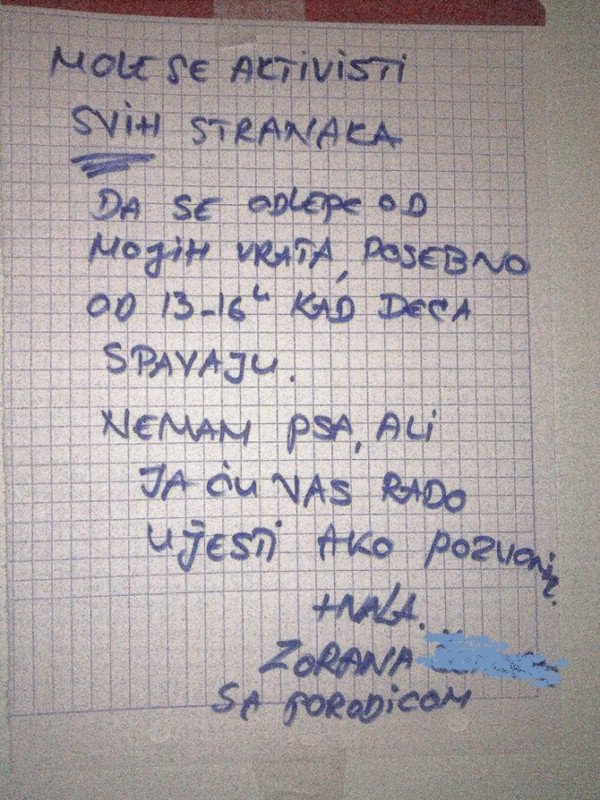 MOLE SE AKTIVISTI
SVIH STRANAKA
DA SE ODLEPE OD
MOJIH VRATA, POSEBNO
OD 13-16h KAD DECA
SPAVAJU.
NEMAM PSA, ALI
JA ĆU VAS RADO
UJESTI AKO
HVALA.
ZORANA
SA PORODICOM